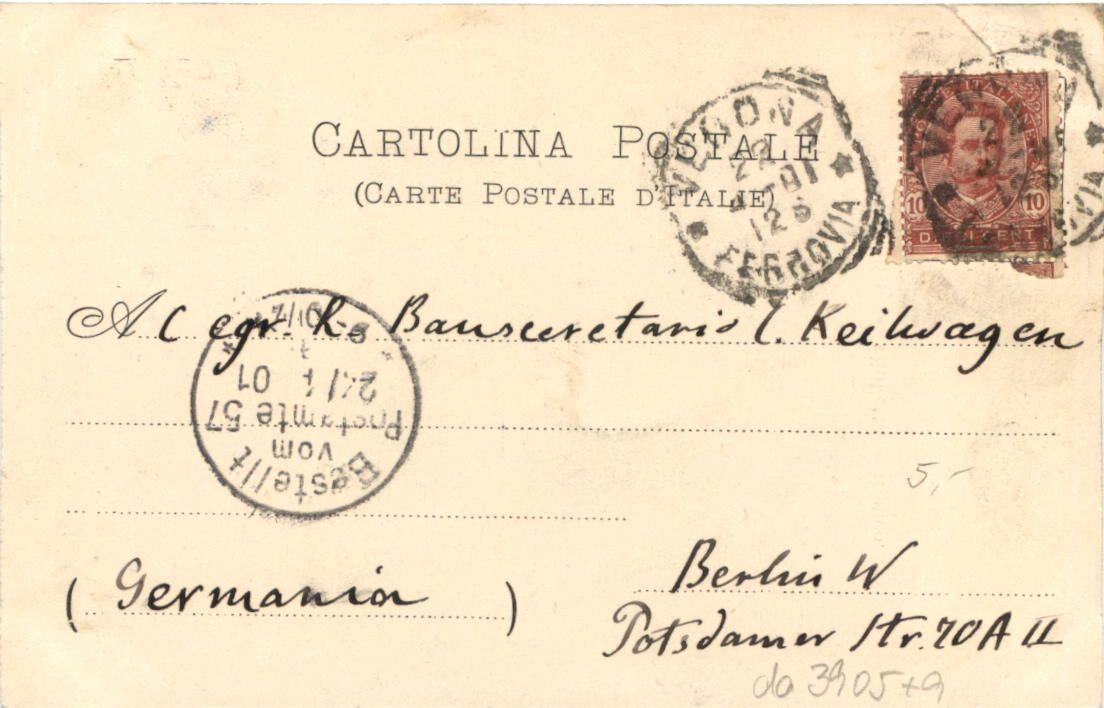 CARTOLINA POSTALE
(CARTE POSTALE D'ITALIE)
VERONA
22
12 S
FERROVIA
10 10
A C egr. R. Bausecretario C. Keilwagen
Bestellt
vom
Postamte 57
24/4 01
5,-
(Germania)
Berlin W
Potsdamer Str. 70A II
da 3905+9